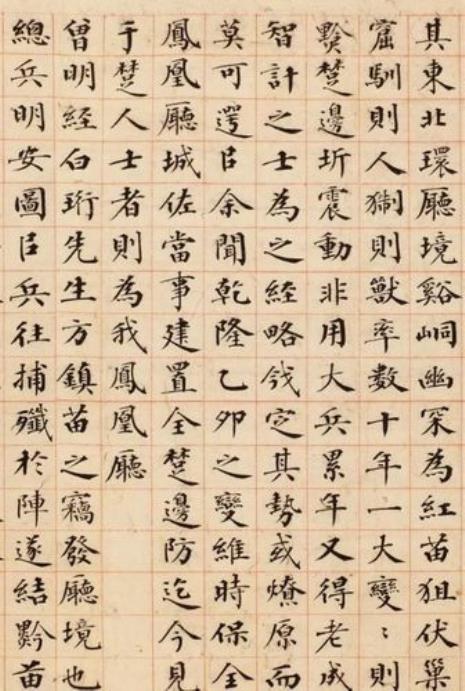 其東北環廳境谿峒幽罙為紅苗狙伏巢
窟馴則人猘則獸率數十年一大變〻則
黔楚邊圻震動非用大兵累年又得老成
智計之士為之經略戡定其勢或燎原而
莫可遏㠯余聞乾隆乙卯之變維時保全
鳳凰廳城佐當事建置全楚邊防迄今見
于楚人士者則為我鳳凰廳
曾明經白珩先生方鎮苗之竊發廳境也
總兵明安圖㠯兵往捕殲於陣遂結黔苗